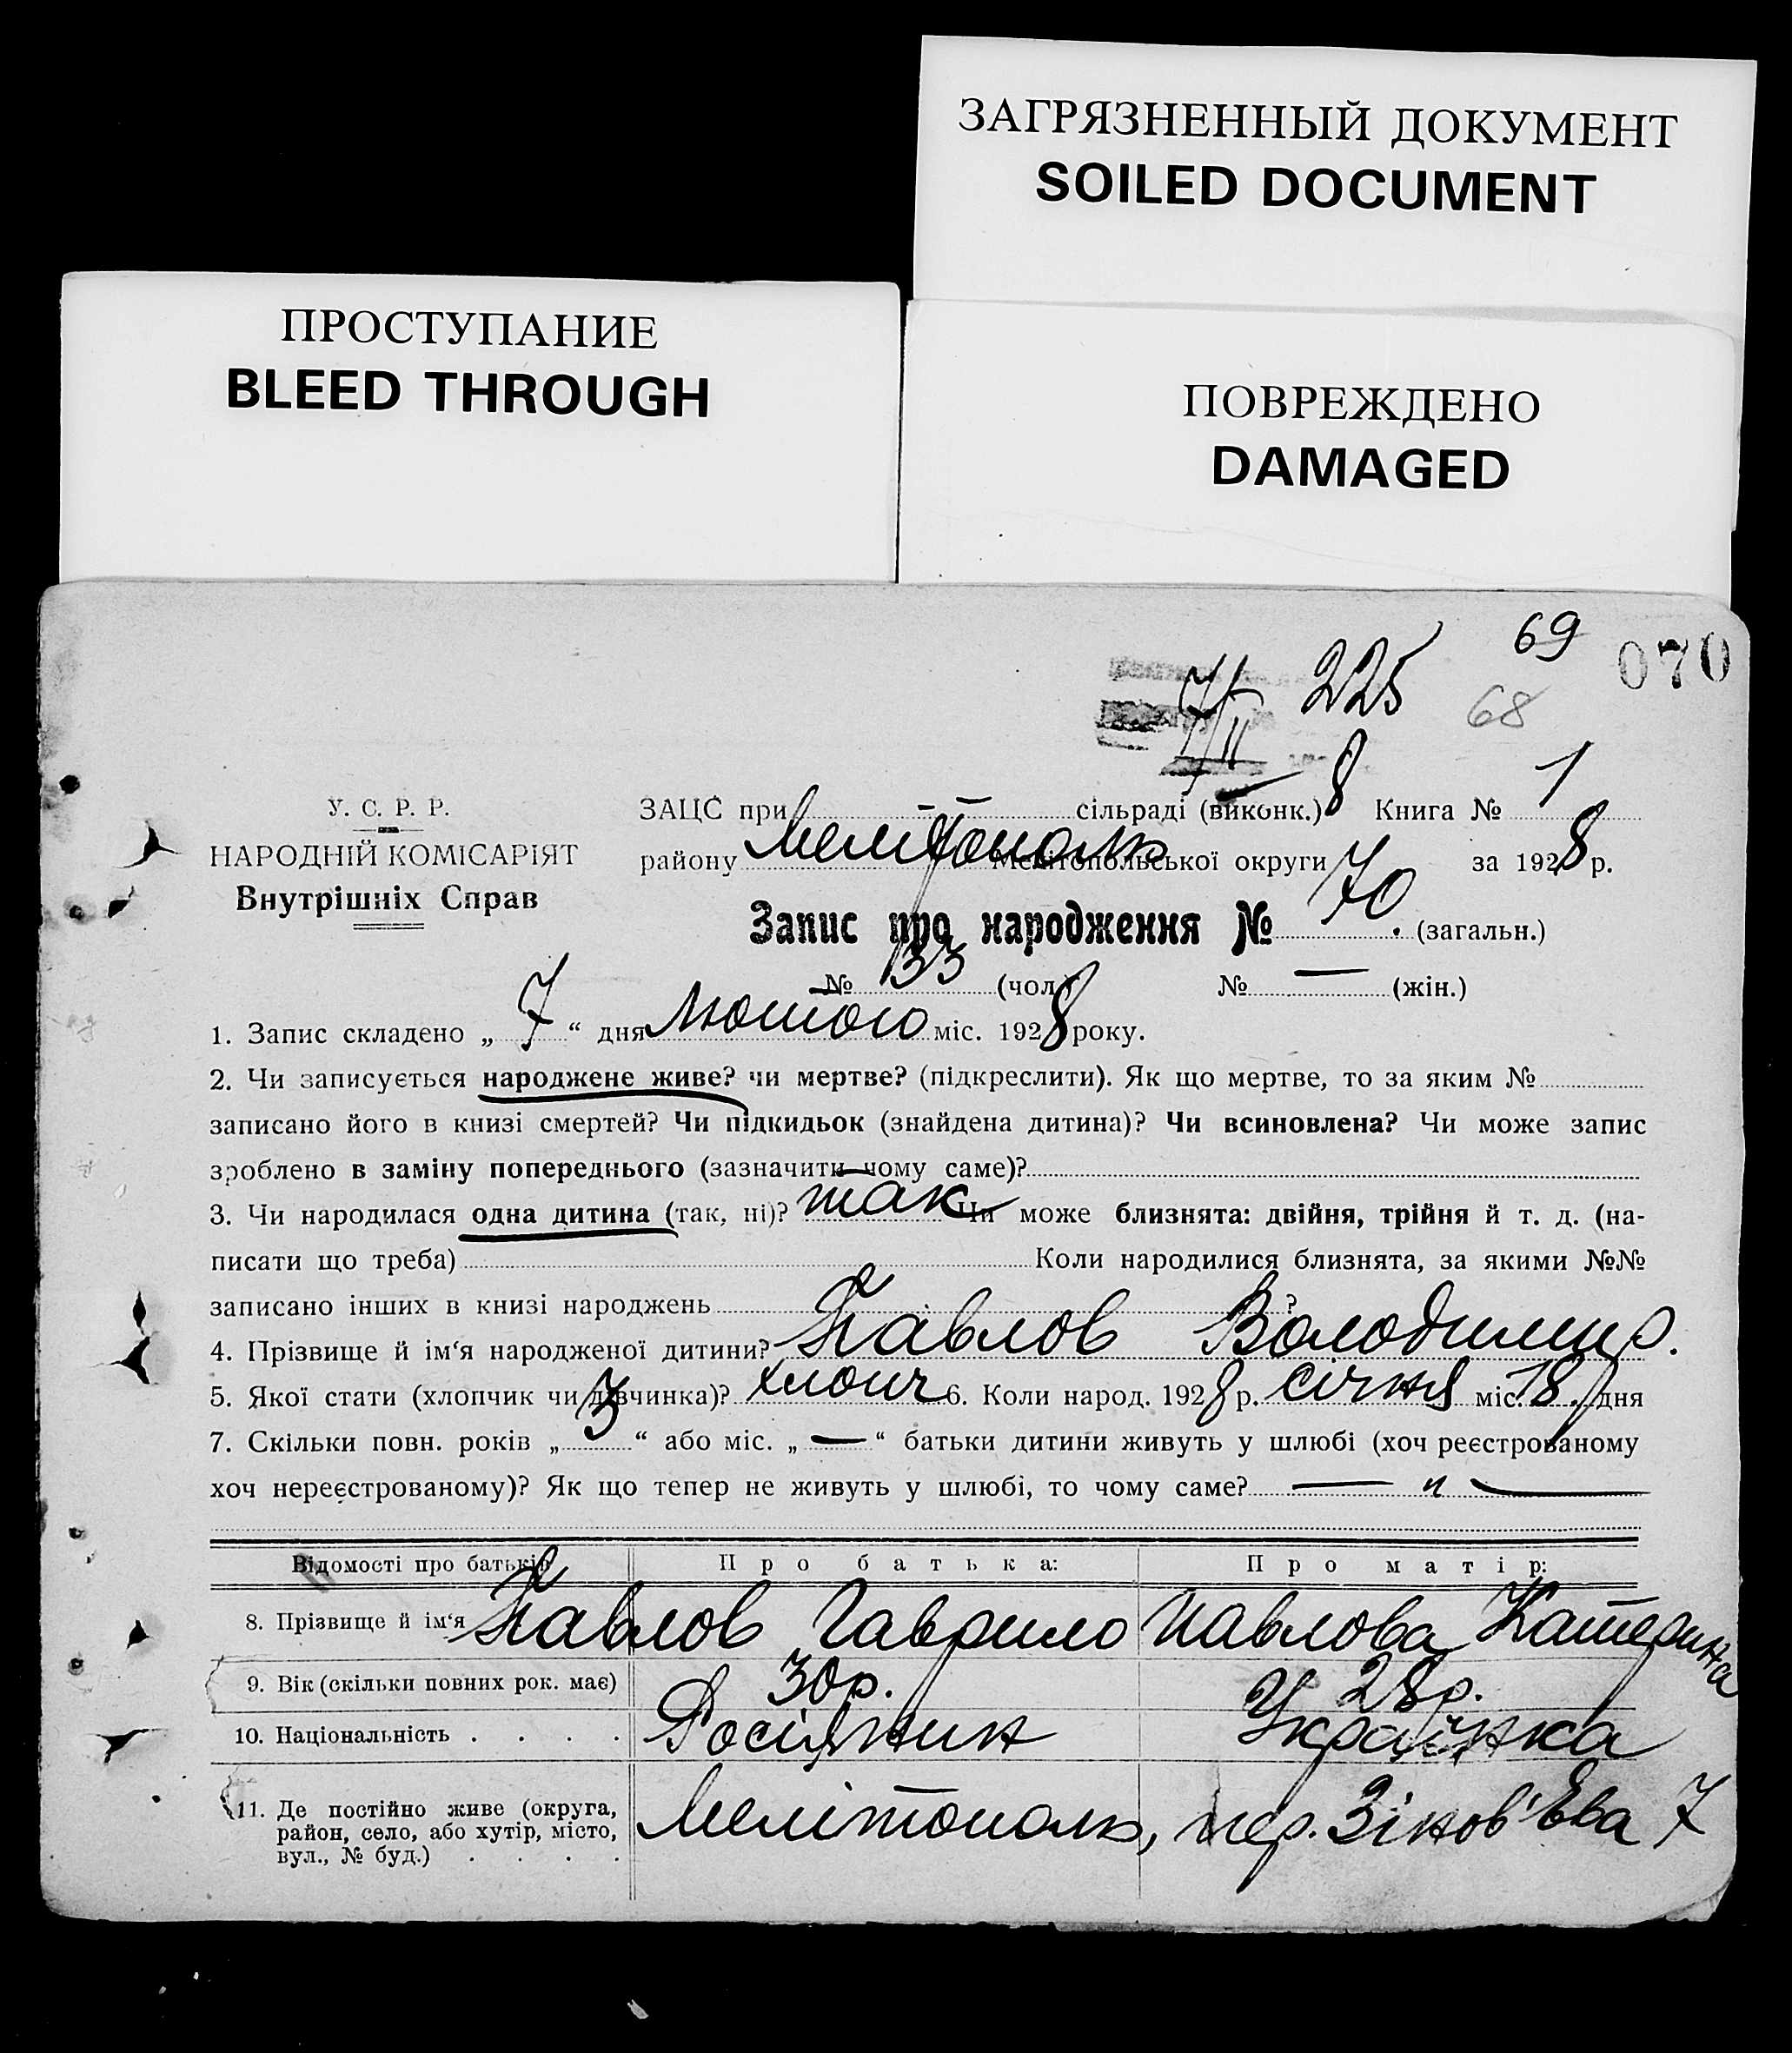 ЗАГРЯЗНЕННЫЙ ДОКУМЕНТ
SOILED DOCUMENT
ПРОСТУПАНИЕ
BLEED THROUGH
ПОВРЕЖДЕНО
DAMAGED
69
070
7/II 225
68
У. С. Р. Р.
НАРОДНІЙ КОМІСАРІЯТ
Внутрішніх Справ
ЗАЦС при — — сільраді (виконк.) 8 Книга № 1
району Мелітополь Мелітопольської округи за 1928 р.
Запис про народження № 70. (загальн.)
№ 33 (чол.) № — (жін.)
1. Запис складено „ 7 “ дня Лютого міс. 1928 року.
2. Чи записується народжене живе? чи мертве? (підкреслити). Як що мертве, то за яким №
записано його в книзі смертей? Чи підкидьок (знайдена дитина)? Чи всиновлена? Чи може запис
зроблено в заміну попереднього (зазначити чому саме)?
3. Чи народилася одна дитина (так, ні)? так Чи може близнята: двійня, трійня й т. д. (на-
писати що треба) Коли народилися близнята, за якими №№
записано інших в книзі народжень ?
4. Прізвище й ім‘я народженої дитини? Павлов Володимир.
5. Якої стати (хлопчик чи дівчинка)? хлопч 6. Коли народ. 1928 р. січня міс. 18. дня
7. Скільки повн. років „ 3 “ або міс. „ — “ батьки дитини живуть у шлюбі (хоч реєстрованому
хоч нереєстрованому)? Як що тепер не живуть у шлюбі, то чому саме? — „ —
Відомості про батьків Про батька: Про матір:
8. Прізвище й ім‘я Павлов Гаврило Павлова Катерина
9. Вік (скільки повних рок. має) 30 р. 28 р.
10. Національність . . . . Росіянин Українка
11. Де постійно живе (округа,
район, село, або хутір, місто,
вул., № буд.) . . . . Мелітополь, пер. Зінов'Ева 7